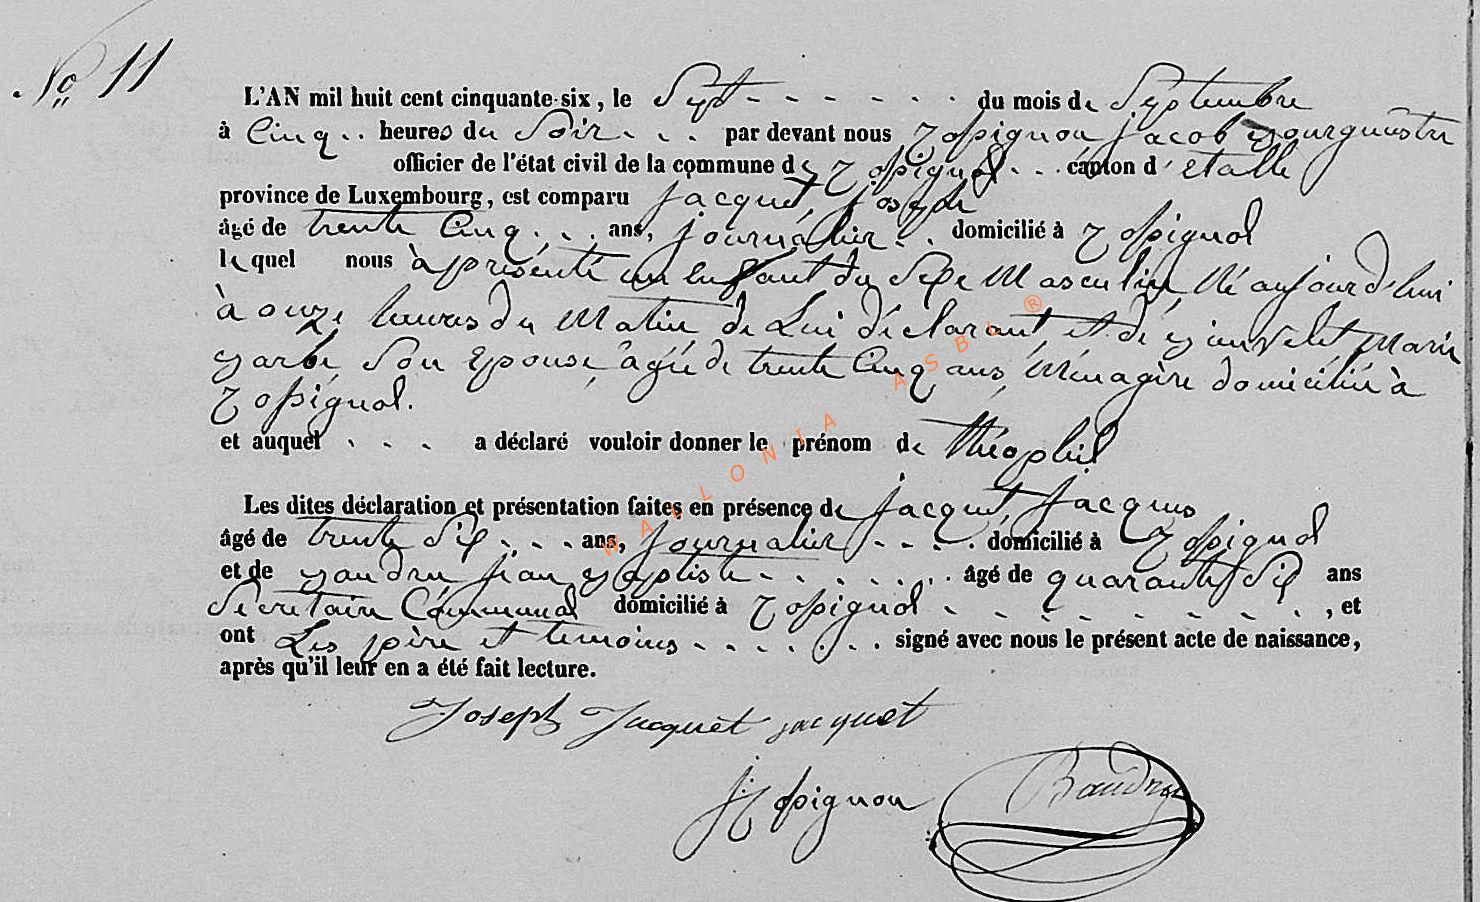 No 11
L'AN mil huit cent cinquante-six, le Sept du mois de Septembre
à Cinq heures du Soir par devant nous Rossignon Jacob Bourgumstre
officier de l'état civil de la commune de Rossignol canton d'Etalle
province de Luxembourg, est comparu Jacquet, Joseph
âgé de trente Cinq ans, journalier domicilié à Rossignol
lequel nous à présenté un Enfant du Sexe Masculin, Né aujourd'hui
à onze heures du Matin de Lui déclarant, et de Bienvelet Marie
Barbe Son Epouse, âgée de trente Cinq ans, Ménagère domiciliée à
Rossignol.
et auquel a déclaré vouloir donner le prénom de Théophil
Les dites déclaration et présentation faites en présence de Jacquet, Jacques
âgé de trente Six ans, journalier domicilié à Rossignol
et de Baudru jean Baptiste âgé de quarante Six ans
Secretaire Communal domicilié à Rossignol, et
ont Les père et temoins signé avec nous le présent acte de naissance,
après qu'il leur en a été fait lecture.
Joseph Jacquet jacquet
J Rossignon Baudru
WALLONIA ASBL ®